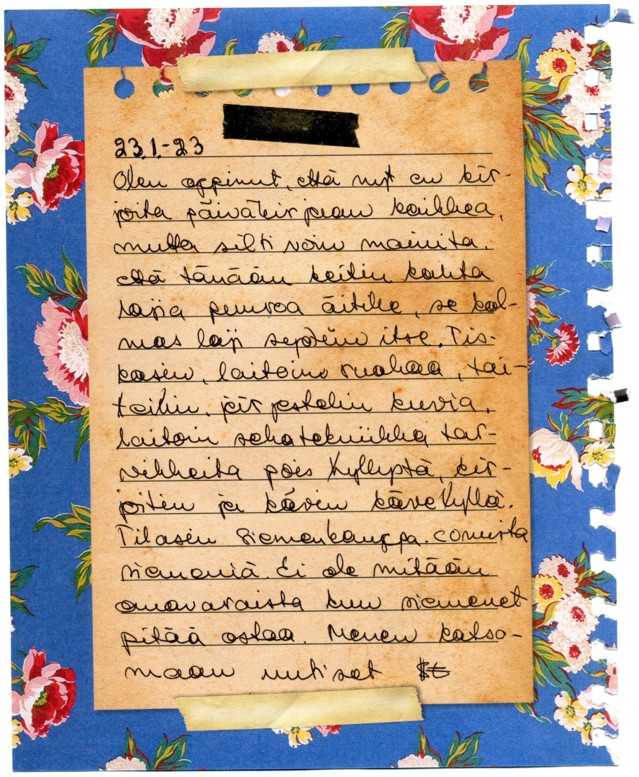 23.1.-23
Olen oppinut, että nyt en kir-
joita päiväkirjaan kaikkea,
mutta silti voin mainita,
että tänään keitin kahta
lajia puuroa äitille, se kol-
mas laji syötiin itse. Tis-
kasin, laitoin ruokaa, tai-
teilin, järjestelin kuvia,
laitoin sekatekniikka tar-
vikkeita pois hyllyltä, kir-
joitin ja kävin kävelyllä.
Tilasin siemenkauppa.comista
siemeniä. Ei ole mitään
omavaraista kun siemenet
pitää ostaa. Menen katso-
maan uutiset